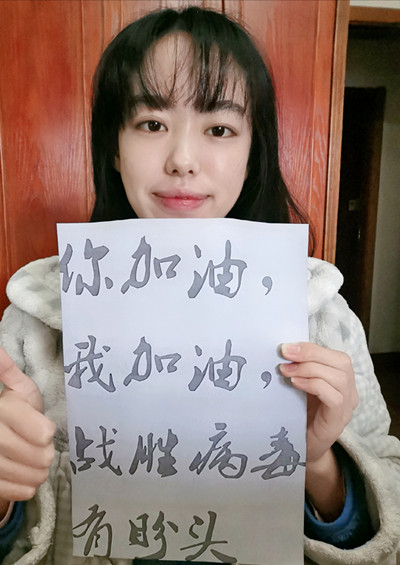 你加油，
我加油，
战胜病毒
有盼头